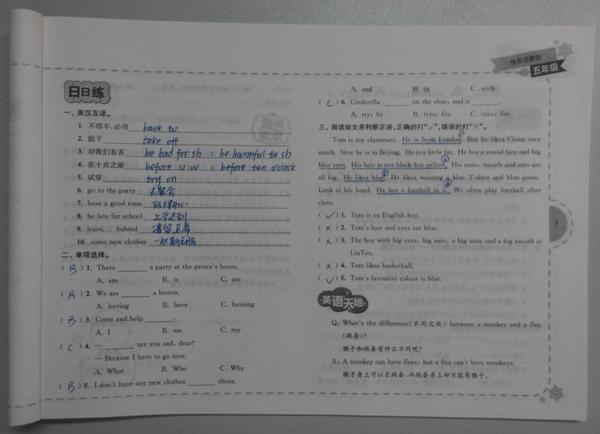 快乐过暑假
五年级
日日练
一、英汉互译。
1. 不得不,必须 have to
2. 脱下 take off
3. 对我们有害 be bad for sb = be harmful to sb
4. 在十点之前 before 10:00 = before ten o'clock
5. 试穿 try on
6. go to the party 去聚会
7. have a good time
8. be late for school 上学迟到
9. leave... behind
10. some new clothes 一些新衣服
二、单项选择。
( B ) 1. There ____ a party at the prince's house.
A. am B. is C. are
( A ) 2. We are ____ a lesson.
A. having B. have C. haveing
( B ) 3. Come and help ____.
A. I B. me C. my
( C ) 4. — ____ are you sad, dear?
— Because I have to go now.
A. What B. Who C. Why
( B ) 5. I don't have any new clothes ____ shoes.
A. and B. or C. with
( C ) 6. Cinderella ____ on the shoe, and it ____.
A. try; fit B. trys; fits C. tries; fits
三、阅读短文并判断正误,正确的打"✓",错误的打"×"。
Tom is my classmate. He is from London. But he likes China very
much. Now he is in Beijing. He is a little fat. He has a round face and big
blue eyes. His hair is not black but yellow. His nose, mouth and ears are
all big. He likes blue. He likes wearing a blue T-shirt and blue jeans.
Look at his hand. He has a football in it. We often play football after
class.
( ✓ ) 1. Tom is an English boy.
( × ) 2. Tom's hair and eyes are blue.
( × ) 3. The boy with big eyes, big ears, a big nose and a big mouth is
LiuTao.
( × ) 4. Tom likes basketball.
( ✓ ) 5. Tom's favourite colour is blue.
英语天地
Q: What's the difference(不同之处) between a monkey and a flea
(跳蚤)?
猴子和跳蚤有什么不同呢?
A: A monkey can have fleas, but a flea can't have monkeys.
猴子身上可以长跳蚤,而跳蚤身上却不能有猴子。